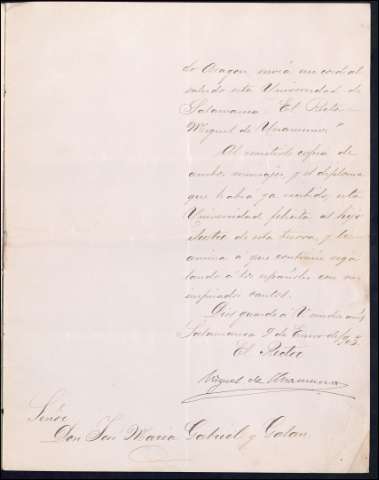 de Aragon envia un cordial
saludo esta Universidad de
Salamanca. El Rector
Miguel de Unamuno."
Al remitirle copia de
ambos mensajes y el diploma
que habrá ya recibido, esta
Universidad felicita al hijo
ilustre de esta tierra y le
anima á que continúe rega
lando á los españoles con sus
inspirados cantos.
Dios guarde á V. muchos años
Salamanca 9 de Enero de
El Rector
Miguel de Unamuno
Señor
Don José María Gabriel y Galan.